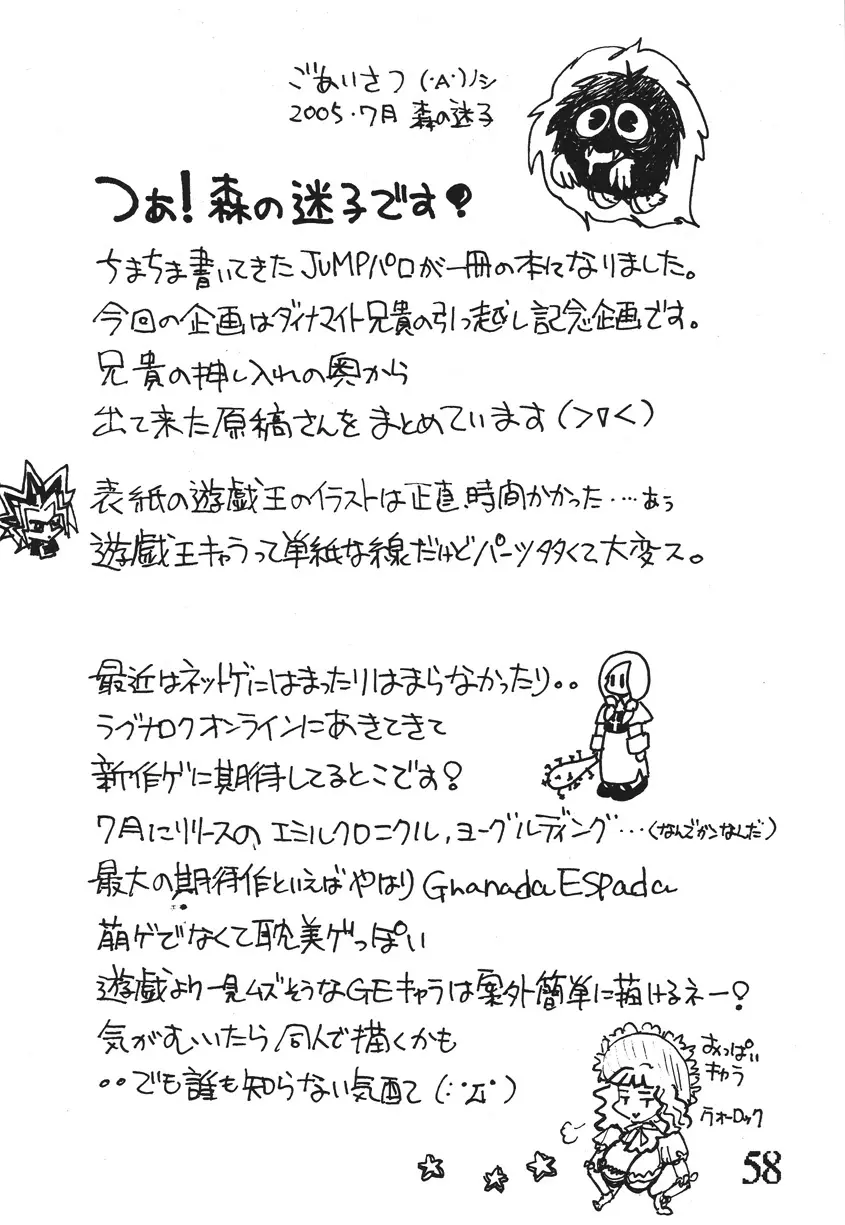 ごあいさつ (・A・)ノシ
2005・7月 森の迷子
つぁ!森の迷子です?
ちまちま書いてきたJUMPパロが一冊の本になりました。
今回の企画はダイナマイト兄貴の引っ越し記念企画です。
兄貴の押し入れの奥から
出て来た原稿さんをまとめています(>▽<)
表紙の遊戯王のイラストは正直時間かかった・・・・あぅ
遊戯王キャラって単紙な線だけどパーツ多くて大変ス。
最近はネットゲにはまったりはまらなかったり。。
ラグナロクオンラインにあきてきて
新作ゲに期待してるとこです?
7月にリリースの、エミルクロニクル,ヨーグルディング…(なんでかんなんだ)
最大の期待作といえばやはりGranada ESpada
萌ゲでなくて耽美ゲっぽい
遊戯より一見ムズそうなGEキャラは案外簡単に描けるネー?
気がむいたら同人で描くかも
・・でも誰も知らない気配て(;゚Д゚)
おっぱい
キャラ
ウォーロック
58